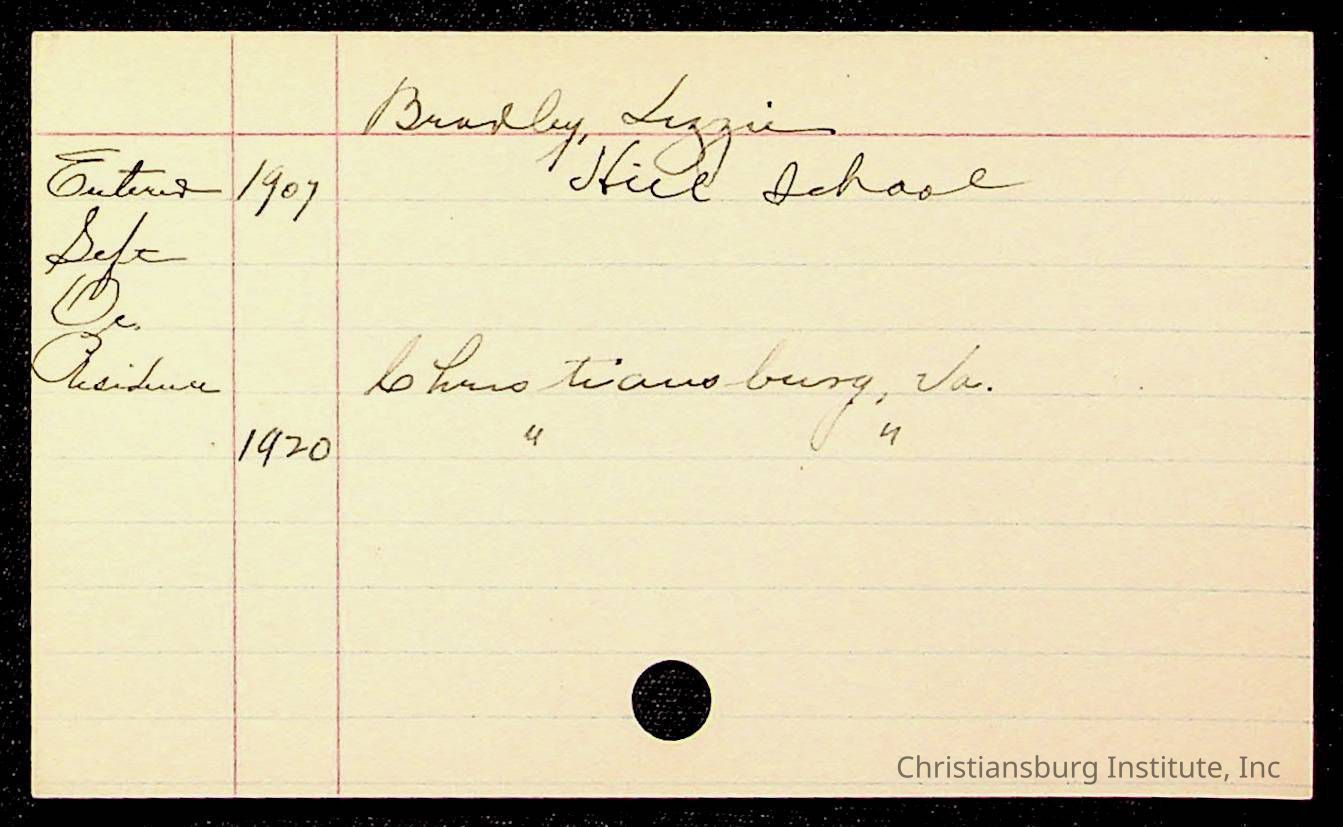 Bradley, Lizzie
Entered 1907 Hill School
Left
Oc.
Residence Christiansburg, Va.
1920 " "
Christiansburg Institute, Inc